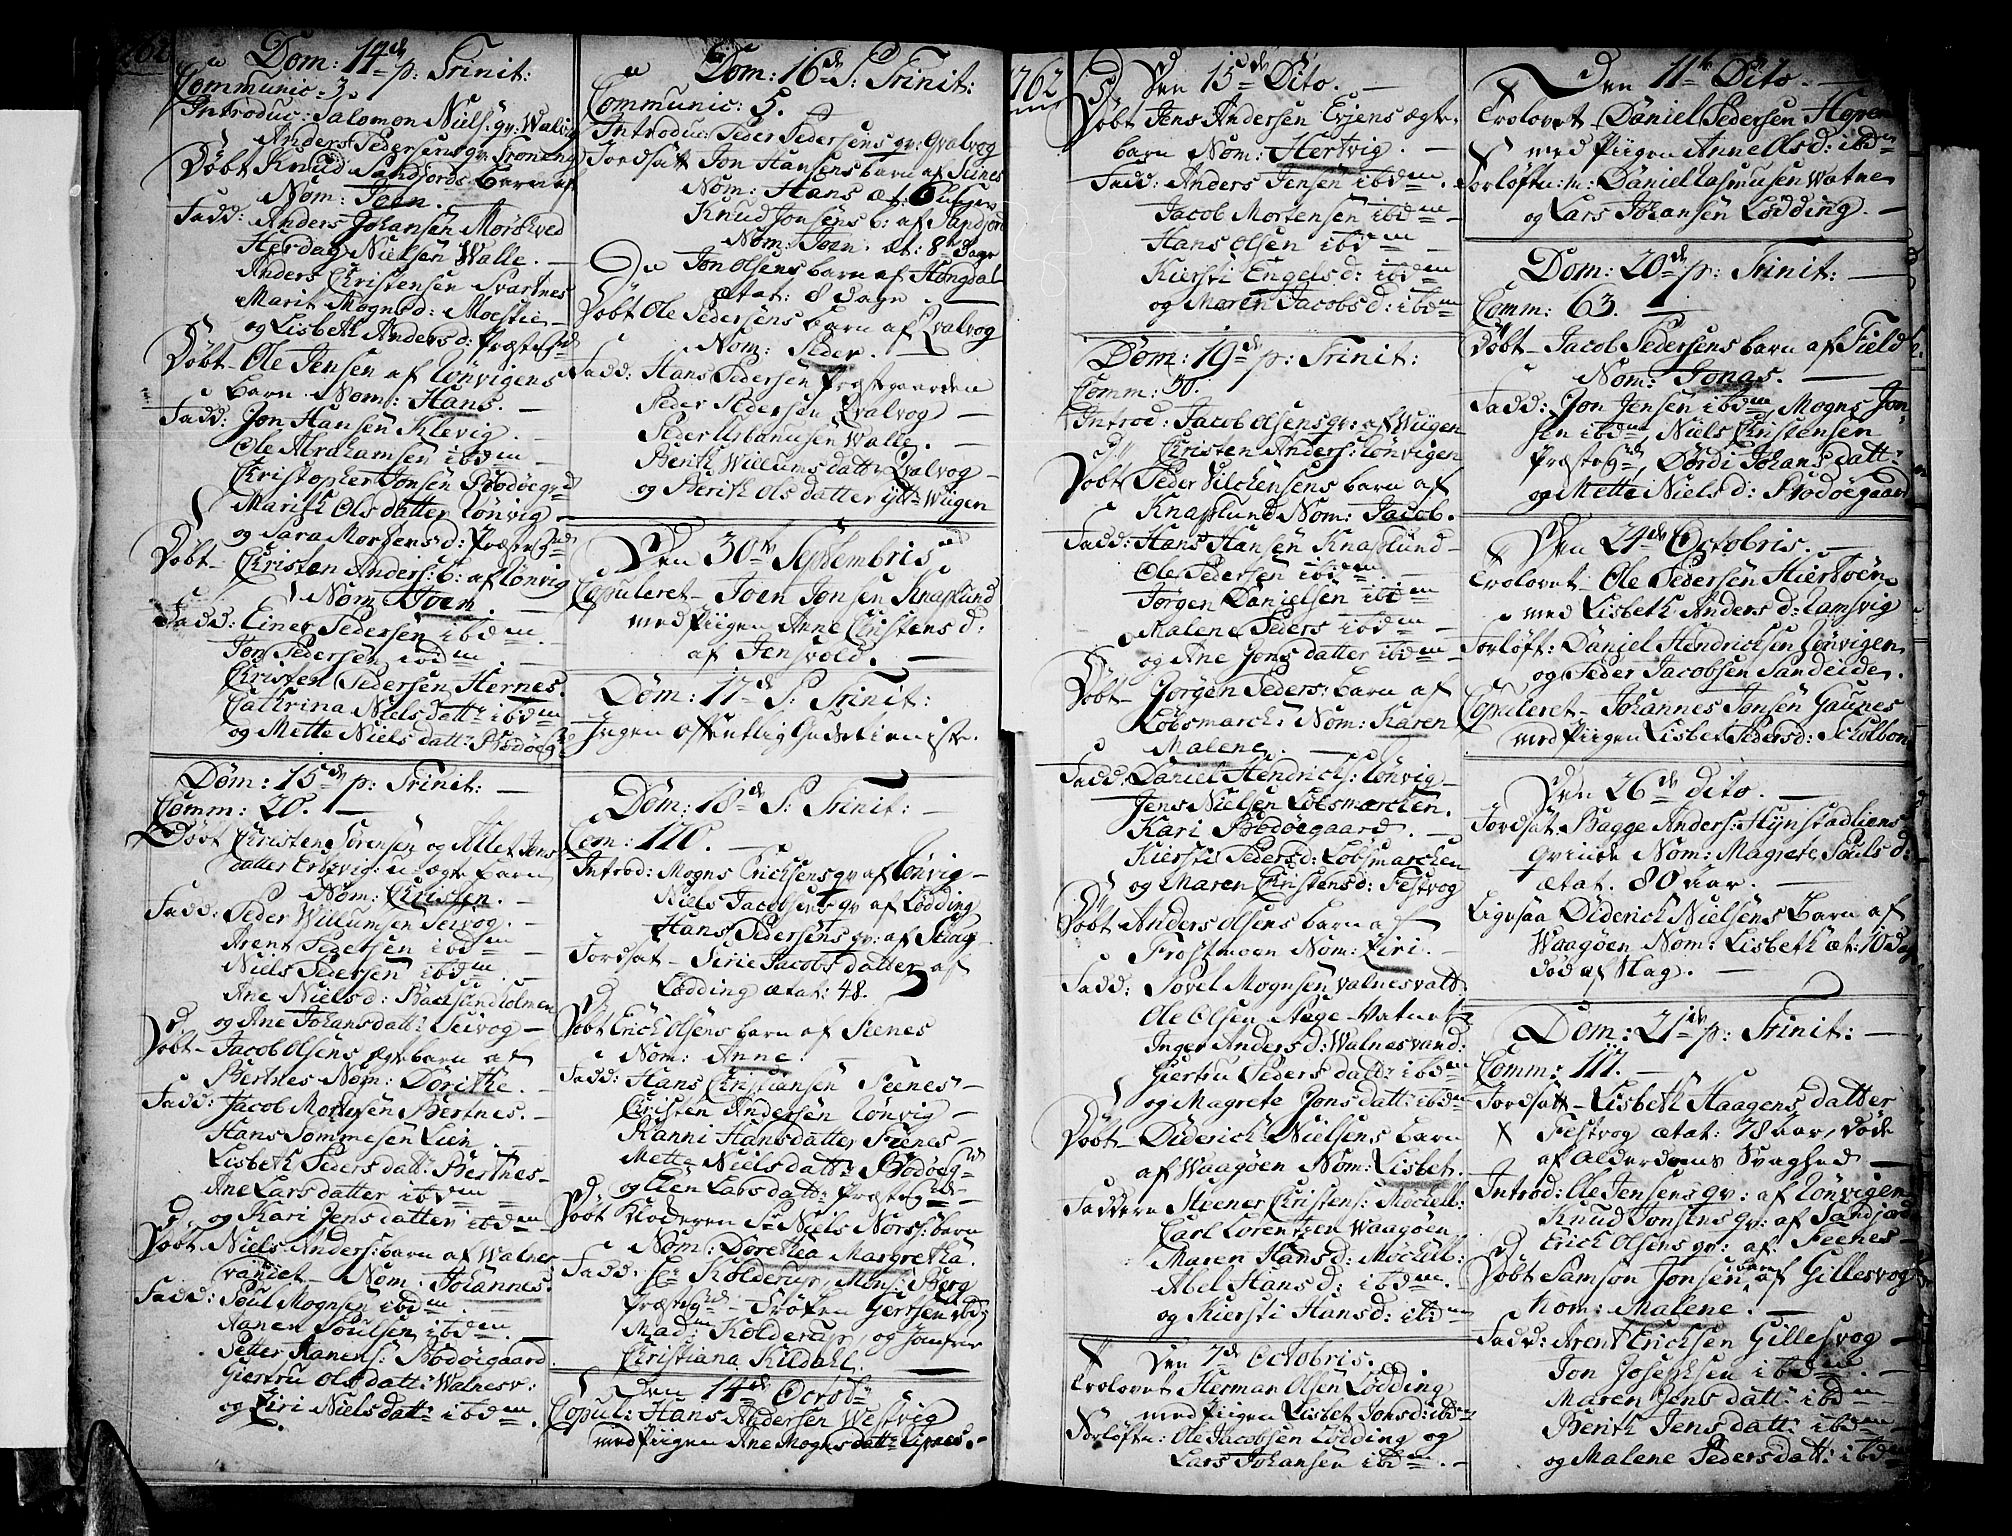 1762
Dom: 14de p: Trinit:
Communic: 3.
Introduc: Salomon Niels: qv: Walvig
Anders Pedersens qv:
Døbt Knud Sandfjords barn af
Nom: Joen.
Fadd: Anders Johansen Mørchved
Herdag Nielsen Walle.
Anders Christensen Svartnes
Marit Mognsd: Moestie
og Lisbeth Andersd: Præstegrd
Døbt Ole Jensen af Lønvigens
barn Nom: Hans.
Fadd: Jon Hansen Klevig.
Ole Abrahamsen ibdm
Christopher Jonsen Bodøegrd
Marith Olsdatter Lønvig
og Sara Mortensd: Præstegrd
Døbt Christen Anders: b: af Lønvig
Nom: Joen.
Fadd: Einer Pedersen ibdm
Jon Pedersen ibdm
Christen Pedersen Hernes.
Cathrina Nielsdattr ibdm
og Mette Niels datt: Bodøeg:
Dom: 15de p: Trinit:
Comm: 20.
Døbt Christen Sørensen og Allet Jens
datter Erfvig: u-ægte barn
Nom: Christen.
Fadd: Peder Willumsen Seivog.
Arent Pedersen ibdm
Niels Pedersen ibdm
Ane Nielsd: Backsandholmen
og Ane Johansdatt: Seivog
Døbt Jacob Olsens ægte barn af
Bertnes Nom: Dorithe.
Fadd: Jacob Mortensen Bertnes.
Hans Sommesen Lien
Lisbeth Pedersdatt: Bertnes
Ane Larsdatter ibdm
og Kari Jensdatter ibdm
Døbt Niels Anders: barn af Walnes
vandet Nom: Johannes.
Fadd: Poul Mognsen ibdm
Hanen Poulsen ibdm
Petter Hanens: Bodøegaard
Giertru Olsdatt: Walnesv:
og Siri Nielsdatt: ibdm
Dom: 16de P: Trinit:
Communic: 5.
Introduc: Peder Pedersens qv: Qvalvog
Jordsatt Jon Hansens barn af Seines
Nom: Hans æt: 6
Knud Jonsens b: af Sandjord
Nom: Joen. æt: 8 Dage
Jon Olsens barn af Hongdal
ætat: 8 dage.
Døbt Ole Pedersens barn af Qvalvog
Nom: Peder.
Fadd: Hans Pedersen Præstgaarden
Peder Pedersen Qvalvog
Peder Urbanusen Walle.
Berith Willumsdattr Qvalvog
og Berith Olsdatter Wiigen
Den 30te Septembris
Copuleret Joen Jonsen Knaplund
med Piigen Ane Christensd:
af Jensvold.
Dom: 17de P: Trinit:
Ingen offentlig Gudstieniste.
Dom: 18de P: Trinit:
Com: 110.
Introd: Mogns Ericksens qv af Lønvig
Niels Jacobsens qv af Lødding
Hans Pedersens qv: af Skaag
Jordsat Sirie Jacobsdatter af
Lødding ætat: 48.
Døbt Erich Olsens barn af Seenes
Nom: Anne.
Fadd: Hans Christiansen Seenes
Christen Andersen Lønvig
Kanni Hansdatter Seenes
Mette Nielsdatt: Bodøeg
og Elen Larsdatt: Præstegrd
Døbt Klokeren Sr Niels Norses: barn
Nom: Dorethea Margretha.
Fadd: Hr Kolderup, Mons: Berg
Præstegrd Frøken Gersenvold;
Mad: Kolderup, og Jomfrue
Christiana Kildahl.
Den 14de Octobr
Copul: Hans Andersen Westvig
med Piigen Ane Mognsdatt:
1762
Den 15de Dito.
Døbt Jens Andersen Evjens ægte
barn Nom: Hertvig.
Fadd: Anders Jensen ibdm
Jacob Mortensen ibdm
Hans Olsen ibdm
Kiersti Engelsd: ibdm
og Maren Jacobsd: ibdm
Dom: 19de p: Trinit:
Comm: 50.
Introd: Jacob Olsens qv: af Wiigen
Christen Anders: Lønvigen
Døbt Peder Dilchensens barn af
Knaplund Nom: Jacob.
Fadd: Hans Hansen Knaplund
Ole Pedersen ibdm
Jørgen Danielsen ibdm
Malene Peders ibdm
og Ane Jonsdatter ibdm
Døbt Jørgen Peders: barn af
Løbsmarch: Nom: Karen
Malene.
Fadd: Daniel Hendrichs: Lønvig
Jens Nielsen Løbsmarchen.
Kari Bodøegaard.
Kiersti Pedersd: Løbsmarchen
og Maren Christensd: Festvog
Døbt Anders Olsens barn af
Frostmoen Nom: Siri.
Fadd: Povel Mognsen Valnesvatd
Ole Olsen Aage-Vatnet
Inger Andersd: Walnesvand:
Giertru Pedersdatt: ibdm
og Magrete Jonsdatt: ibdm
Døbt Diderich Nielsens barn
af Waagøen Nom: Lisbet.
Faddere Steener Christens: Mochell:
Carl Lorentzen Waagøen
Maren Hansd: Mochell:
Abel Hansd: ibdm
og Kiersti Hansd: ibdm
Den 7de Octobris.
Trolovet Herman Olsen Lødding
med Piigen Lisbet Jonsd: ibdm
Forløftn: Ole Jacobsen Lødding og
Lars Johansen ibdm
Den 11te Dito.
Trolovet Daniel Pedersen
med Piigen Anne Olsd: ibdm
Forløftn: m: Daniel Rasmusen Watne
og Lars Johansen Lødding.
Dom: 20de p: Trinit:
Comm: 63.
Døbt Jacob Pedersens barn af Field
Nom: Jonas.
Fadd: Jon Jensen ibdm, Mogns Jon
sen ibdm, Niels Christensen
Præstegrd, Dørdi Johansdatt:
og Mette Nielsd: Bodøegaard
Den 24de Octobris.
Trolovet Ole Pedersen Hiertøen
med Lisbeth Andersd: Ramsvig
Forløft: Daniel Hendrichsen Lønvigen
og Peder Jacobsen Sandeide.
Copuleret Johannes Jonsen Gaunes
med Piigen Lisbet Pedersd: Scholbon
Den 26de dito.
Jordsat Bagge Anders: Hynstadliens
qvinde Nom: Magrete Pouls d:
ætat. 80 aar.
Ligesaa Diderich Nielsens Barn af
Waagøen Nom: Lisbeth æt: 10 dag
død af Slag.
Dom: 21de p: Trinit:
Comm: 111.
Jordsatt Lisbeth Haagensdatter
Festvog ætat: 78 aar, døde
af Alderdoms Svaghed
Introd: Ole Jensens qv: af Lønvigen
Knud Jonsens qv: af Sandjord
Erich Olsens qv: af Seenes
Døbt Samson Jonsens barn af Gillesvog
Nom: Malene.
Fadd: Arent Ericksen Gillesvog
Jon Josephsen ibdm
Maren Jensdatt: ibdm
Berith Jensdatt: ibdm
og Malene Pedersdatt: ibdm